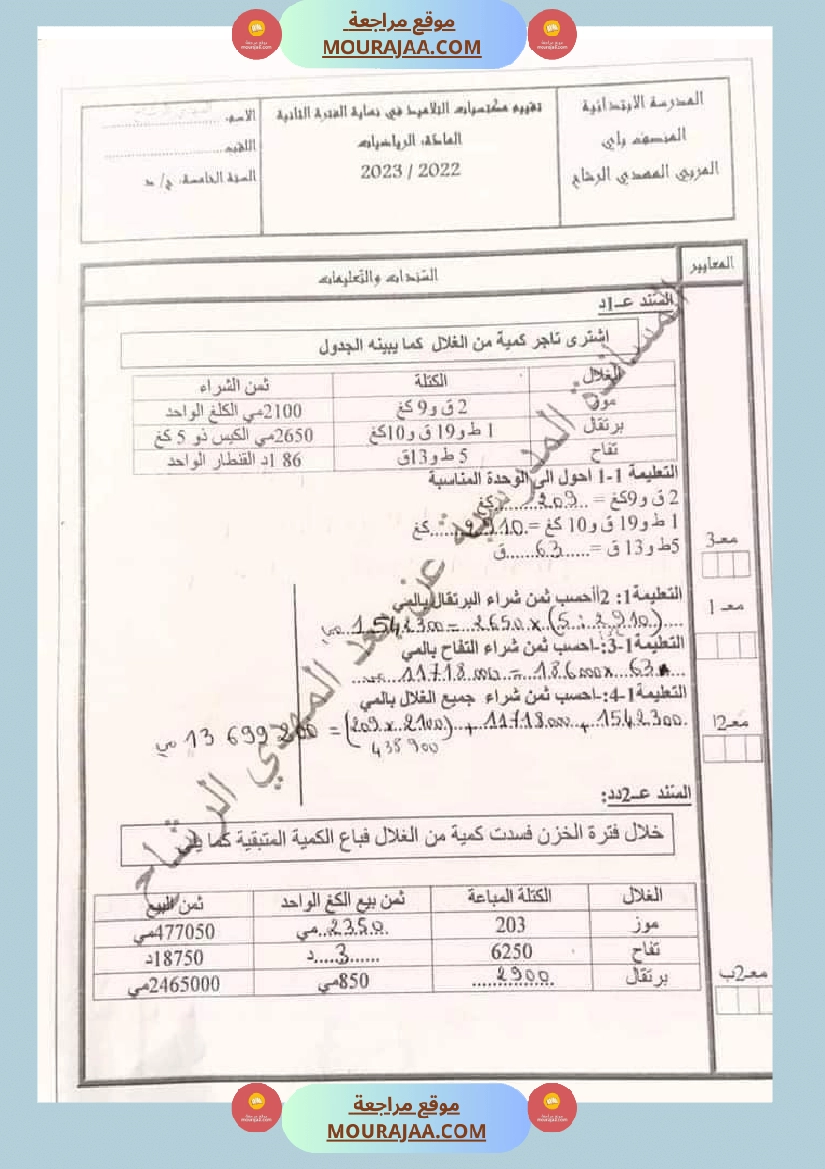 موقع مراجعة
MOURAJAA.COM
المدرسة الابتدائية
المنصف باي
المزيج المهدي الرشاح
تقييم مكتسبات التلاميذ في نهاية الفترة الثانية
المادة: الرياضيات
2023 / 2022
الاسم:
اللقب:
السنة الخامسة: ج/ د
المعايير
السّندات والتعليمات
السّند عـ1د
اشترى تاجر كمية من الغلال كما يبينه الجدول
الغلال الكتلة ثمن الشراء
موز 2 ق و9 كغ 2100مي الكلغ الواحد
برتقال 1 ط و19 ق و10كغ 2650مي الكيس ذو 5 كغ
تفاح 5 ط و13ق 186د القنطار الواحد
التعليمة 1-1 احول الى الوحدة المناسبة
2 ق و9كغ = ..209.......كغ
1 ط و19 ق و10 كغ =.2910......كغ
5ط و13 ق =.....63......ق
معـ3
التعليمة1: 2أحسب ثمن شراء البرتقال بالمي
1542300 = 2650 x (5 : 2910) مي
معـ1
التعليمة1-3:-احسب ثمن شراء التفاح بالمي
11718000 = 186000 x 63 مي
التعليمة1-4:-احسب ثمن شراء جميع الغلال بالمي
13 699 200 = (209 x 2100) + 11718000 + 1542300 مي
438 900
معـ2ا
السّند عـ2دد:
خلال فترة الخزن فسدت كمية من الغلال فباع الكمية المتبقية كما يلي
الغلال الكتلة المباعة ثمن بيع الكغ الواحد ثمن البيع
موز 203 2350 مي 477050مي
تفاح 6250 ......3.....د 18750د
برتقال 2900 850مي 2465000مي
معـ2ب
المساندة المدرسية عن بعد المهدي الرشاح
موقع مراجعة
MOURAJAA.COM